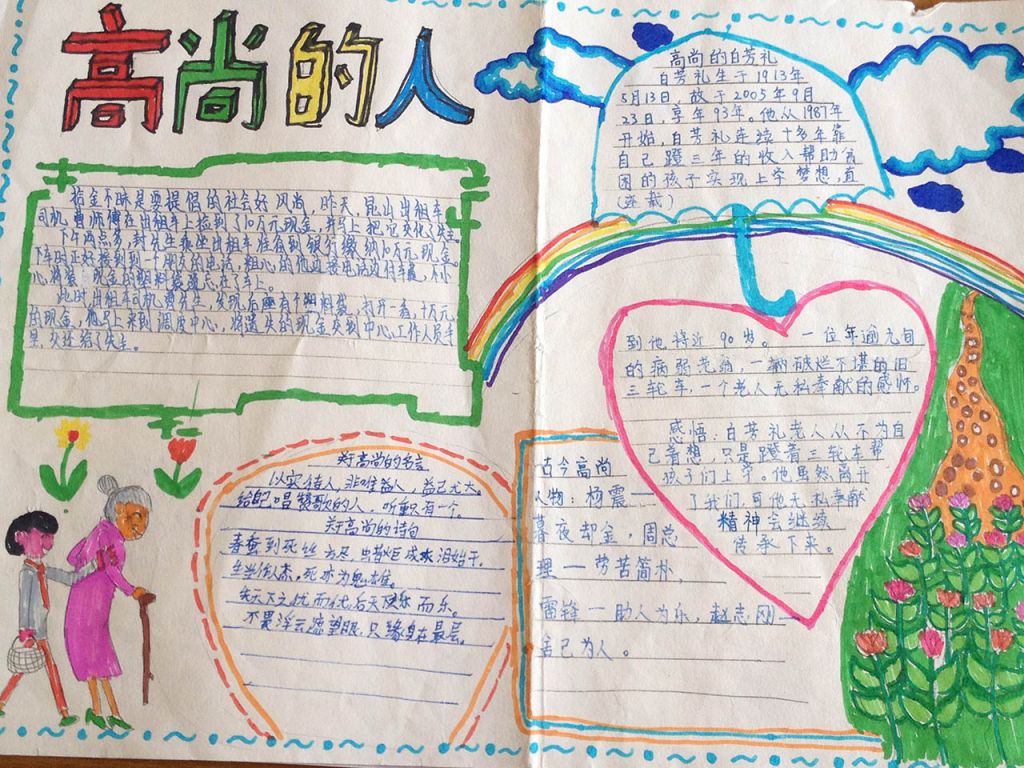 高尚的人
拾金不昧是要提倡的社会好风尚，昨天，昆山出租车
司机曹师傅在出租车上捡到了10万元现金，并马上把它交还了失主。
下午两点多，封先生乘坐出租车准备到银行缴纳10万元现金。
下车时正好接到一个朋友的电话，粗心的他边接电话边付车费，不小
心将装了现金的塑料袋遗忘在了车上。
此时，出租车司机曹先生，发现后座有个塑料袋，打开一看，十万元
的现金，他马上来到调度中心，将遗失的现金交到中心工作人员手
里，交还给了失主。
高尚的白芳礼
白芳礼生于1913年
5月13日，故于2005年9月
23日，享年93年。他从1987年
开始，白芳礼连续十多年靠
自己蹬三年的收入帮助贫
困的孩子实现上学梦想，直
（连载）
到他将近90岁。一位年逾九旬
的病弱老翁，一辆破烂不堪的旧
三轮车，一个老人无私奉献的感师。
感悟：白芳礼老人从不为自
己着想，只是蹬着三轮车帮
孩子们上学。他虽然离开
了我们，可他无私奉献
精神会继续
传承下来。
对于高尚的名言
以实待人，非唯益人，益己尤大。
给自己唱赞歌的人，听众只有一个。
对于高尚的诗句
春蚕到死丝方尽，蜡炬成灰泪始干。
生当作人杰，死亦为鬼雄。
先天下之忧而忧，后天下之乐而乐。
不畏浮云遮望眼，只缘身在最层。
古今高尚
人物：杨震一
暮夜却金，周总
理一劳苦简朴，
雷锋一助人为乐，赵志刚一
舍己为人。